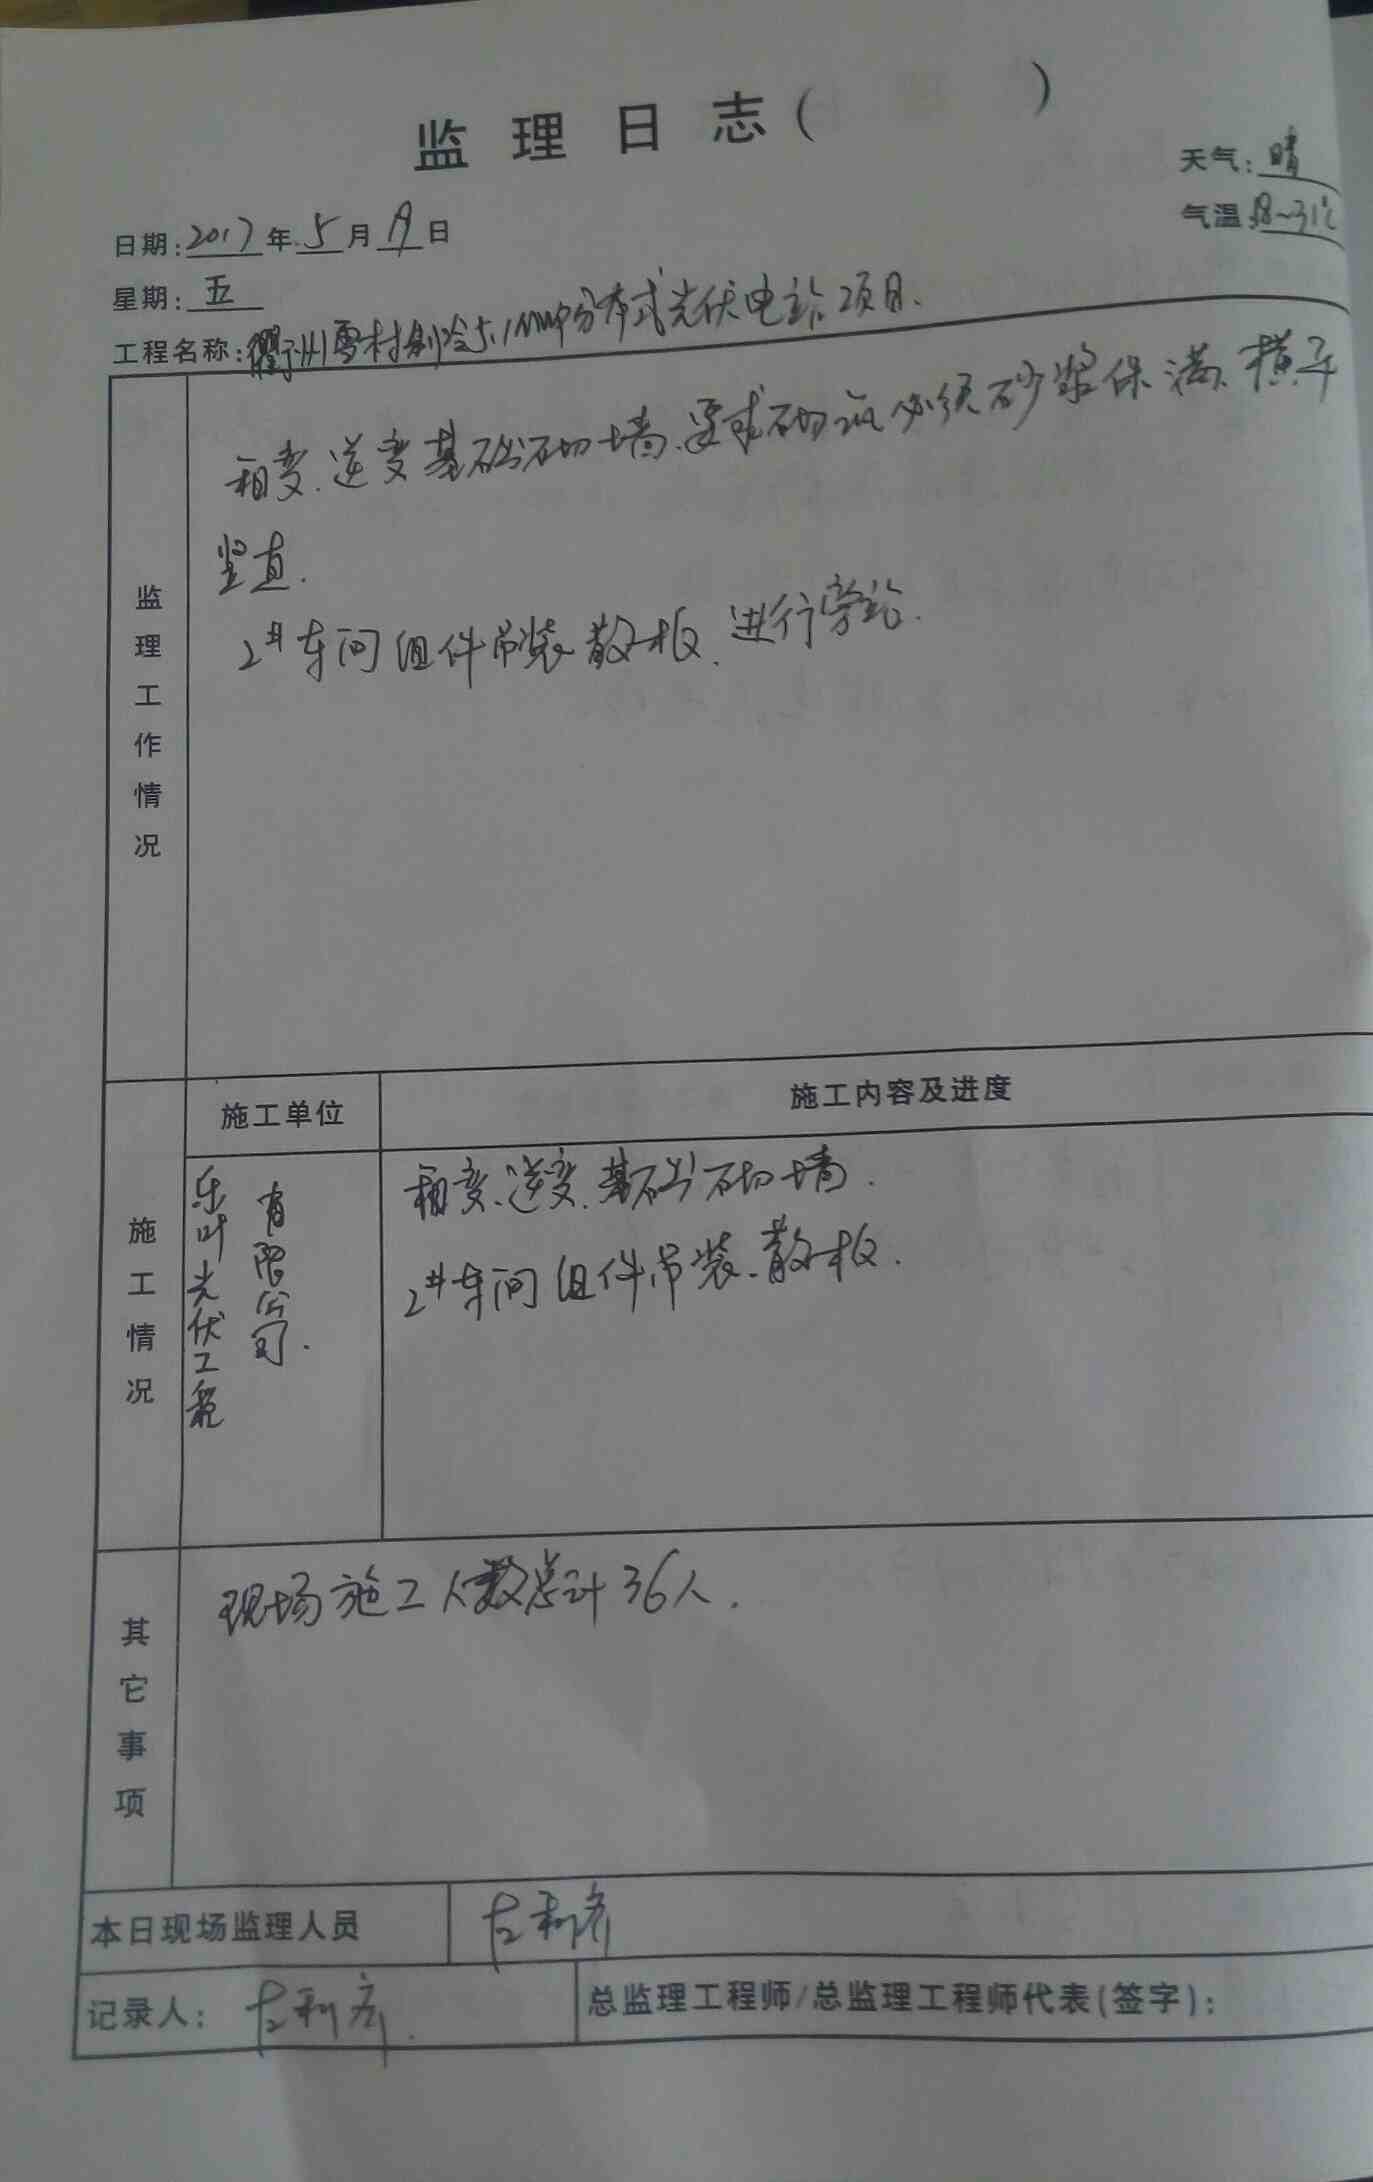 监理日志( )
天气:晴
日期:2017年5月19日
气温:18~31℃
星期:五
工程名称:衢州雪村制冷5.1MWP分布式光伏电站项目.
监理工作情况
箱变.逆变基础砌墙.要求砌筑必须砂浆保满、横平
竖直.
2#车间组件吊装散板.进行旁站.
施工情况
施工单位
施工内容及进度
乐叶光伏工程
有限公司.
箱变、逆变.基础砌墙.
2#车间组件吊装.散板.
其它事项
现场施工人数总计36人.
本日现场监理人员
记录人:
总监理工程师/总监理工程师代表(签字):